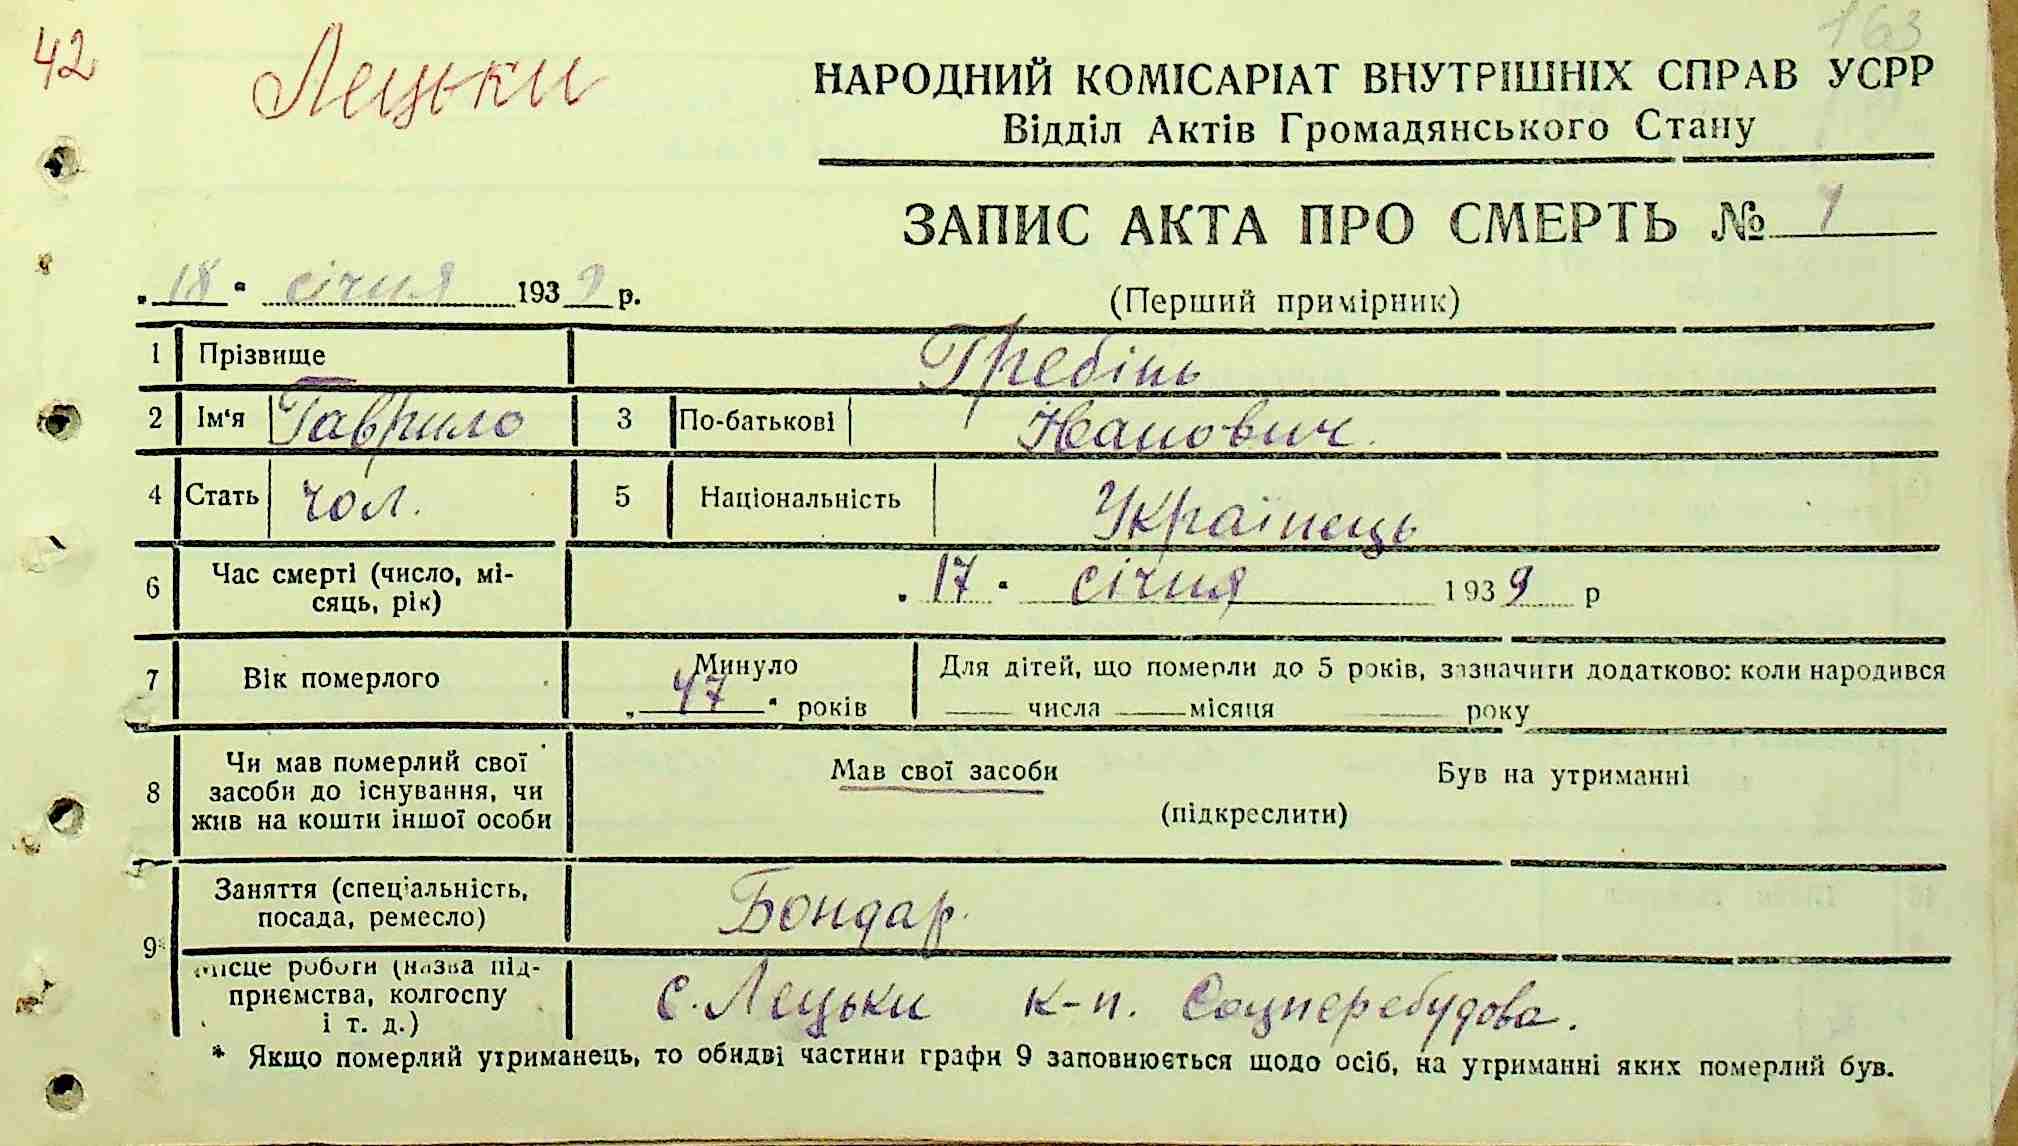 163
42
Лецьки
НАРОДНИЙ КОМІСАРІАТ ВНУТРІШНІХ СПРАВ УСРР
Відділ Актів Громадянського Стану
ЗАПИС АКТА ПРО СМЕРТЬ № 1
„18“ січня 1939 р.
(Перший примірник)
1 Прізвище Гребінь
2 Ім'я Гаврило 3 По-батькові Іванович.
4 Стать чол. 5 Національність Українець
6 Час смерті (число, мі-
сяць, рік) „17“ січня 1939 р
7 Вік померлого Минуло
„47“ років
Для дітей, що померли до 5 років, зазначити додатково: коли народився
числа місяця року
8 Чи мав померлий свої
засоби до існування, чи
жив на кошти іншої особи
Мав свої засоби Був на утриманні
(підкреслити)
9*
Заняття (спеціальність,
посада, ремесло) Бондар.
Місце роботи (назва під-
приємства, колгоспу
і т. д.) с. Лецьки к-п. Соцперебудова.
* Якщо померлий утриманець, то обидві частини графи 9 заповнюється щодо осіб, на утриманні яких померлий був.